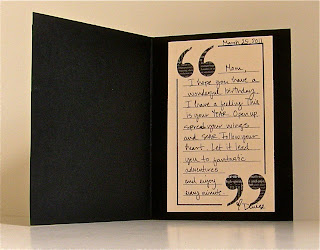 March 25, 2011
Mom,
I hope you have a
wonderful birthday.
I have a feeling this
is your YEAR. Open up,
spread your wings
and SOAR. Follow your
heart. Let it lead
you to fantastic
adventures.
and enjoy
every minute.